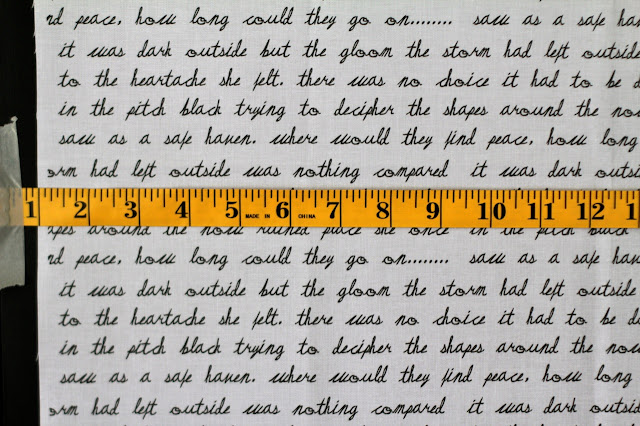 nd peace, how long could they go on........ saw as a safe hav
it was dark outside but the gloom the storm had left outside
to the heartache she felt. there was no choice it had to be d
in the pitch black trying to decipher the shapes around the now
saw as a safe haven. where would they find peace, how long
orm had left outside was nothing compared it was dark outsi
1 2 3 4 5 MADE IN 6 CHINA 7 8 9 10 11 12 1
apes around the now ruined place she once in the pitch black
nd peace, how long could they go on........ saw as a safe hav
it was dark outside but the gloom the storm had left outside
to the heartache she felt. there was no choice it had to be d
in the pitch black trying to decipher the shapes around the now
saw as a safe haven. where would they find peace, how long
orm had left outside was nothing compared it was dark outsi